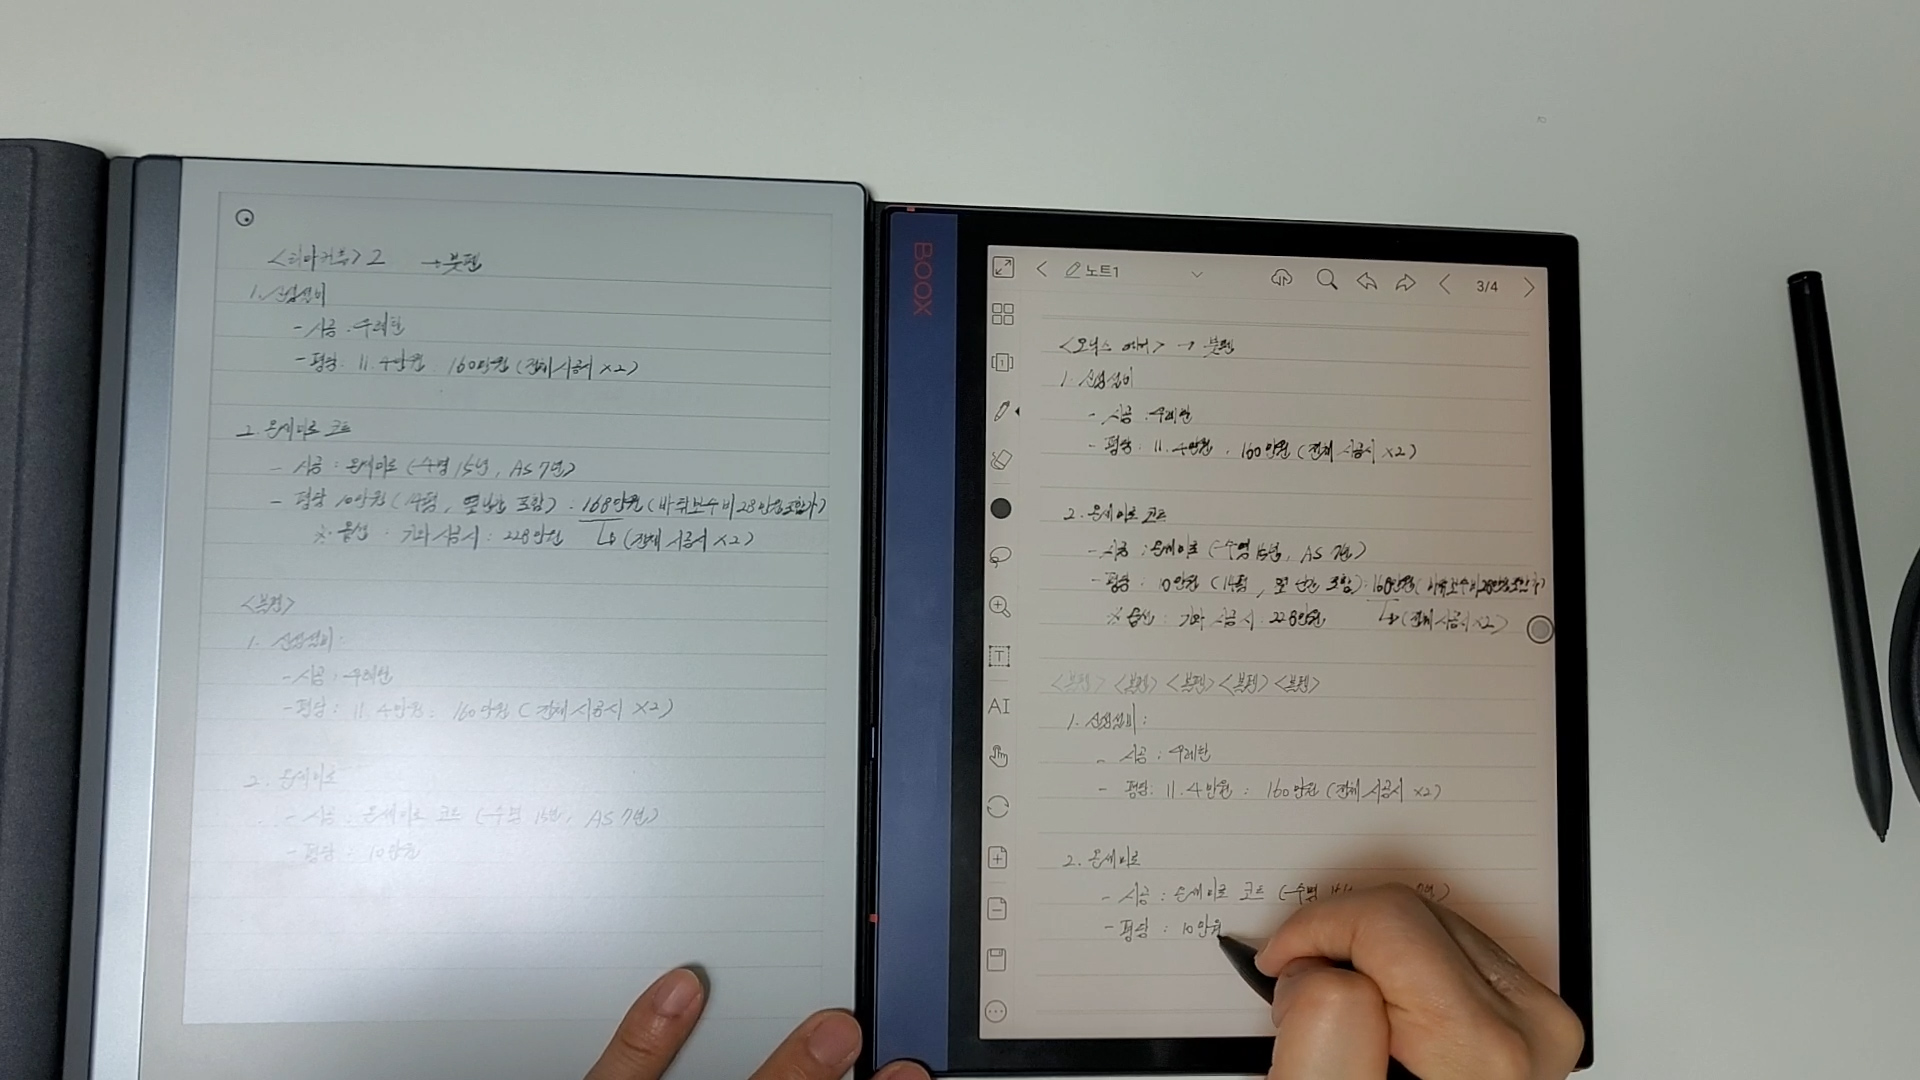 <리마커블> 2 → 붓펜
1. 신생설비
- 시공 : 우레탄
- 평당 : 11.4만원 : 160만원 (전체 시공시 x2)
2. 온새미로 코트
- 시공 : 온새미로 (수명 15년, AS 7년)
- 평당 10만원 (14평, 옆난간 포함) : 168만원 (바닥보수비 28만원 포함가)
※ 옵션 : 기와 시공시 : 228만원 ↳ (전체 시공시 x2)
<볼펜>
1. 신생설비 :
- 시공 : 우레탄
- 평당 : 11.4만원 : 160만원 (전체 시공시 x2)
2. 온새미로
- 시공 : 온새미로 코트 (수명 15년, AS 7년)
- 평당 : 10만원
BOOX
노트1 3/4
<오닉스 에어> → 붓펜
1. 신생설비
- 시공 : 우레탄
- 평당 : 11.4만원 : 160만원 (전체 시공시 x2)
2. 온새미로 코트
- 시공 : 온새미로 (수명 15년, AS 7년)
- 평당 : 10만원 (14평, 옆 난간 포함) : 168만원 (보수비 28만원 포함가)
※ 옵션 : 기와 시공시 : 228만원 ↳ (전체 시공시 x2)
<볼펜> <볼펜> <볼펜> <볼펜> <볼펜>
1. 신생설비 :
- 시공 : 우레탄
- 평당 : 11.4만원 : 160만원 (전체 시공시 x2)
2. 온새미로
- 시공 : 온새미로 코트 (수명
- 평당 : 10만원
T
AI